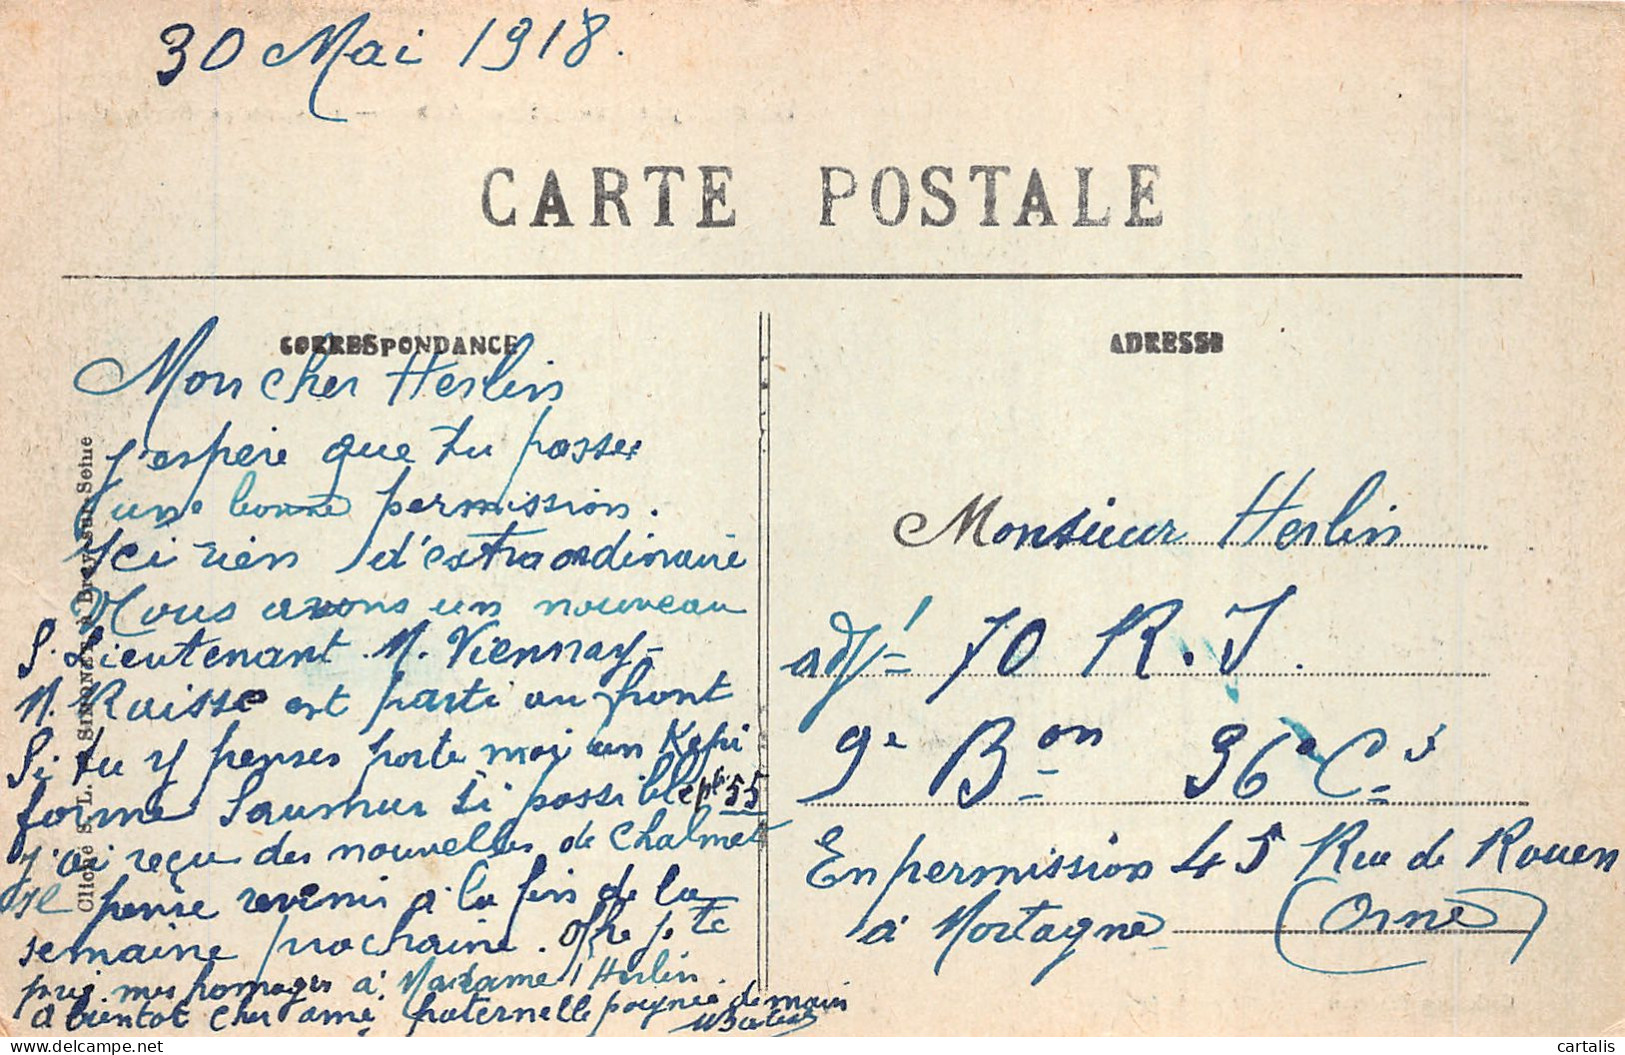 30 Mai 1918.
CARTE POSTALE
CORRESPONDANCE
Mon cher Herlin
J'espère que tu passes
une bonne permission.
Ici rien d'extraordinaire
Nous avons un nouveau
S. Lieutenant M. Viennay-
M. Raisse est parti au front
Si tu y penses porte moi un Kepi
forme Saumur si possible pte 55
J'ai reçu des nouvelles de Chalmet
Il pense revenir à la fin de la
semaine prochaine. Offre je te
prie mes homages à Madame Herlin.
A bientot cher ami fraternelle poignée de main
ADRESSE
Monsieur Herlin
adjt 70 R.I.
9e Bon 36e Cie
En permission 45 Rue de Rouen
à Mortagne (Orne)
Cliché S. L. SIMONET, Bray-sur-Seine
cartalis